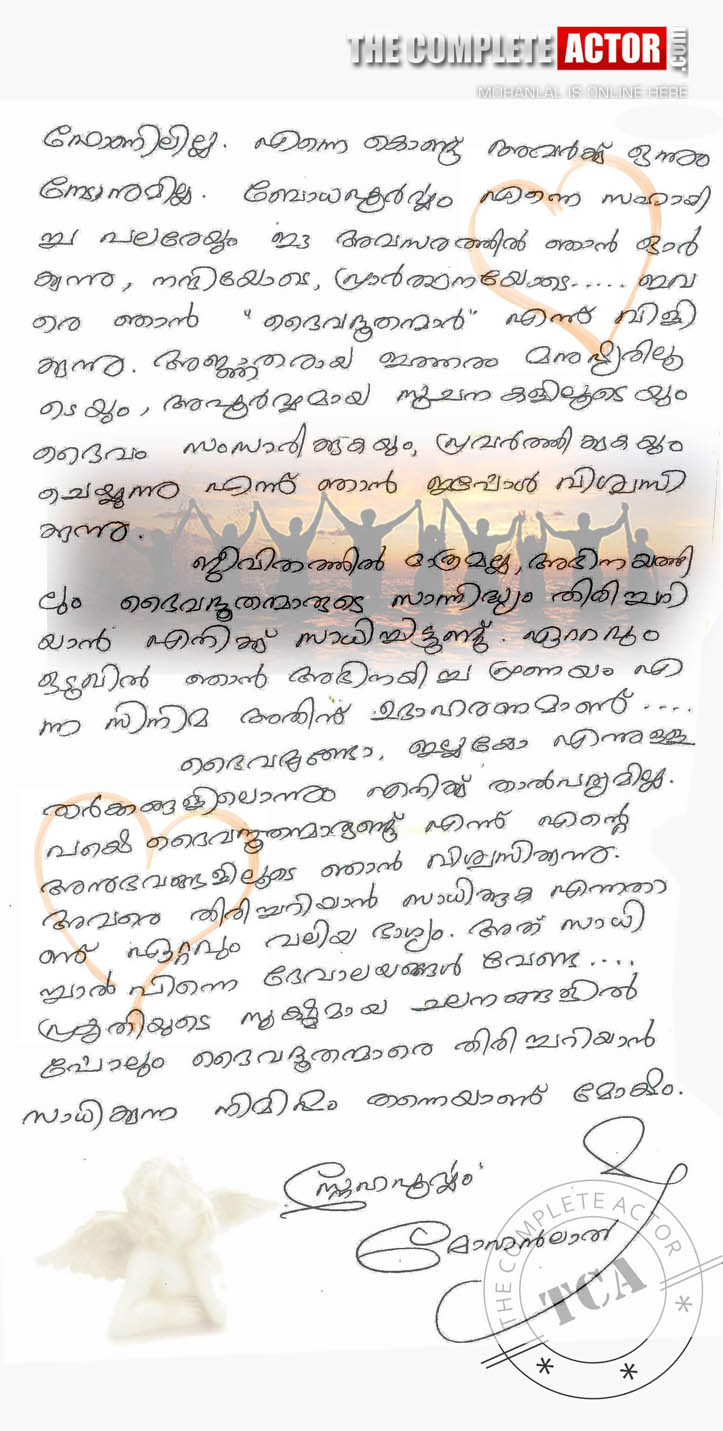 THE COMPLETE ACTOR .com
MOHANLAL IS ONLINE HERE
ഫോണിലില്ല. എന്നെ കൊണ്ട് അവർക്ക് ഒന്നും
നേടാനുമില്ല. ബോധപൂർവ്വം എന്നെ സഹായി
ച്ച പലരേയും ഈ അവസരത്തിൽ ഞാൻ ഓർ
ക്കുന്നു, നന്ദിയോടെ, പ്രാർത്ഥനയോടെ..... ഇവ
രെ ഞാൻ "ദൈവദൂതന്മാർ" എന്ന് വിളി
ക്കുന്നു. അജ്ഞാതരായ ഇത്തരം മനുഷ്യരിലൂ
ടെയും, അപൂർവ്വമായ സൂചനകളിലൂടെയും
ദൈവം സംസാരിക്കുകയും, പ്രവർത്തിക്കുകയും
ചെയ്യുന്നു എന്ന് ഞാൻ ഇപ്പോൾ വിശ്വസി
ക്കുന്നു.
ജീവിതത്തിൽ മാത്രമല്ല, അഭിനയത്തി
ലും ദൈവദൂതന്മാരുടെ സാന്നിദ്ധ്യം തിരിച്ചറി
യാൻ എനിക്ക് സാധിച്ചിട്ടുണ്ട്. ഏറ്റവും
ഒടുവിൽ ഞാൻ അഭിനയിച്ച പ്രണയം എ
ന്ന സിനിമ അതിന് ഉദാഹരണമാണ്....
ദൈവമുണ്ടോ, ഇല്ലയോ എന്നുള്ള
തർക്കങ്ങളിലൊന്നും എനിക്ക് താൽപര്യമില്ല.
പക്ഷെ ദൈവദൂതന്മാരുണ്ട് എന്ന് എന്റെ
അനുഭവങ്ങളിലൂടെ ഞാൻ വിശ്വസിക്കുന്നു.
അവരെ തിരിച്ചറിയാൻ സാധിക്കുക എന്നതാ
ണ് ഏറ്റവും വലിയ ഭാഗ്യം. അത് സാധി
ച്ചാൽ പിന്നെ ദേവാലയങ്ങൾ വേണ്ട....
പ്രകൃതിയുടെ സൂക്ഷ്മമായ ചലനങ്ങളിൽ
പ്പോലും ദൈവദൂതന്മാരെ തിരിച്ചറിയാൻ
സാധിക്കുന്ന നിമിഷം തന്നെയാണ് മോക്ഷം.
സ്നേഹപൂർവ്വം
മോഹൻലാൽ
THE COMPLETE ACTOR
TCA